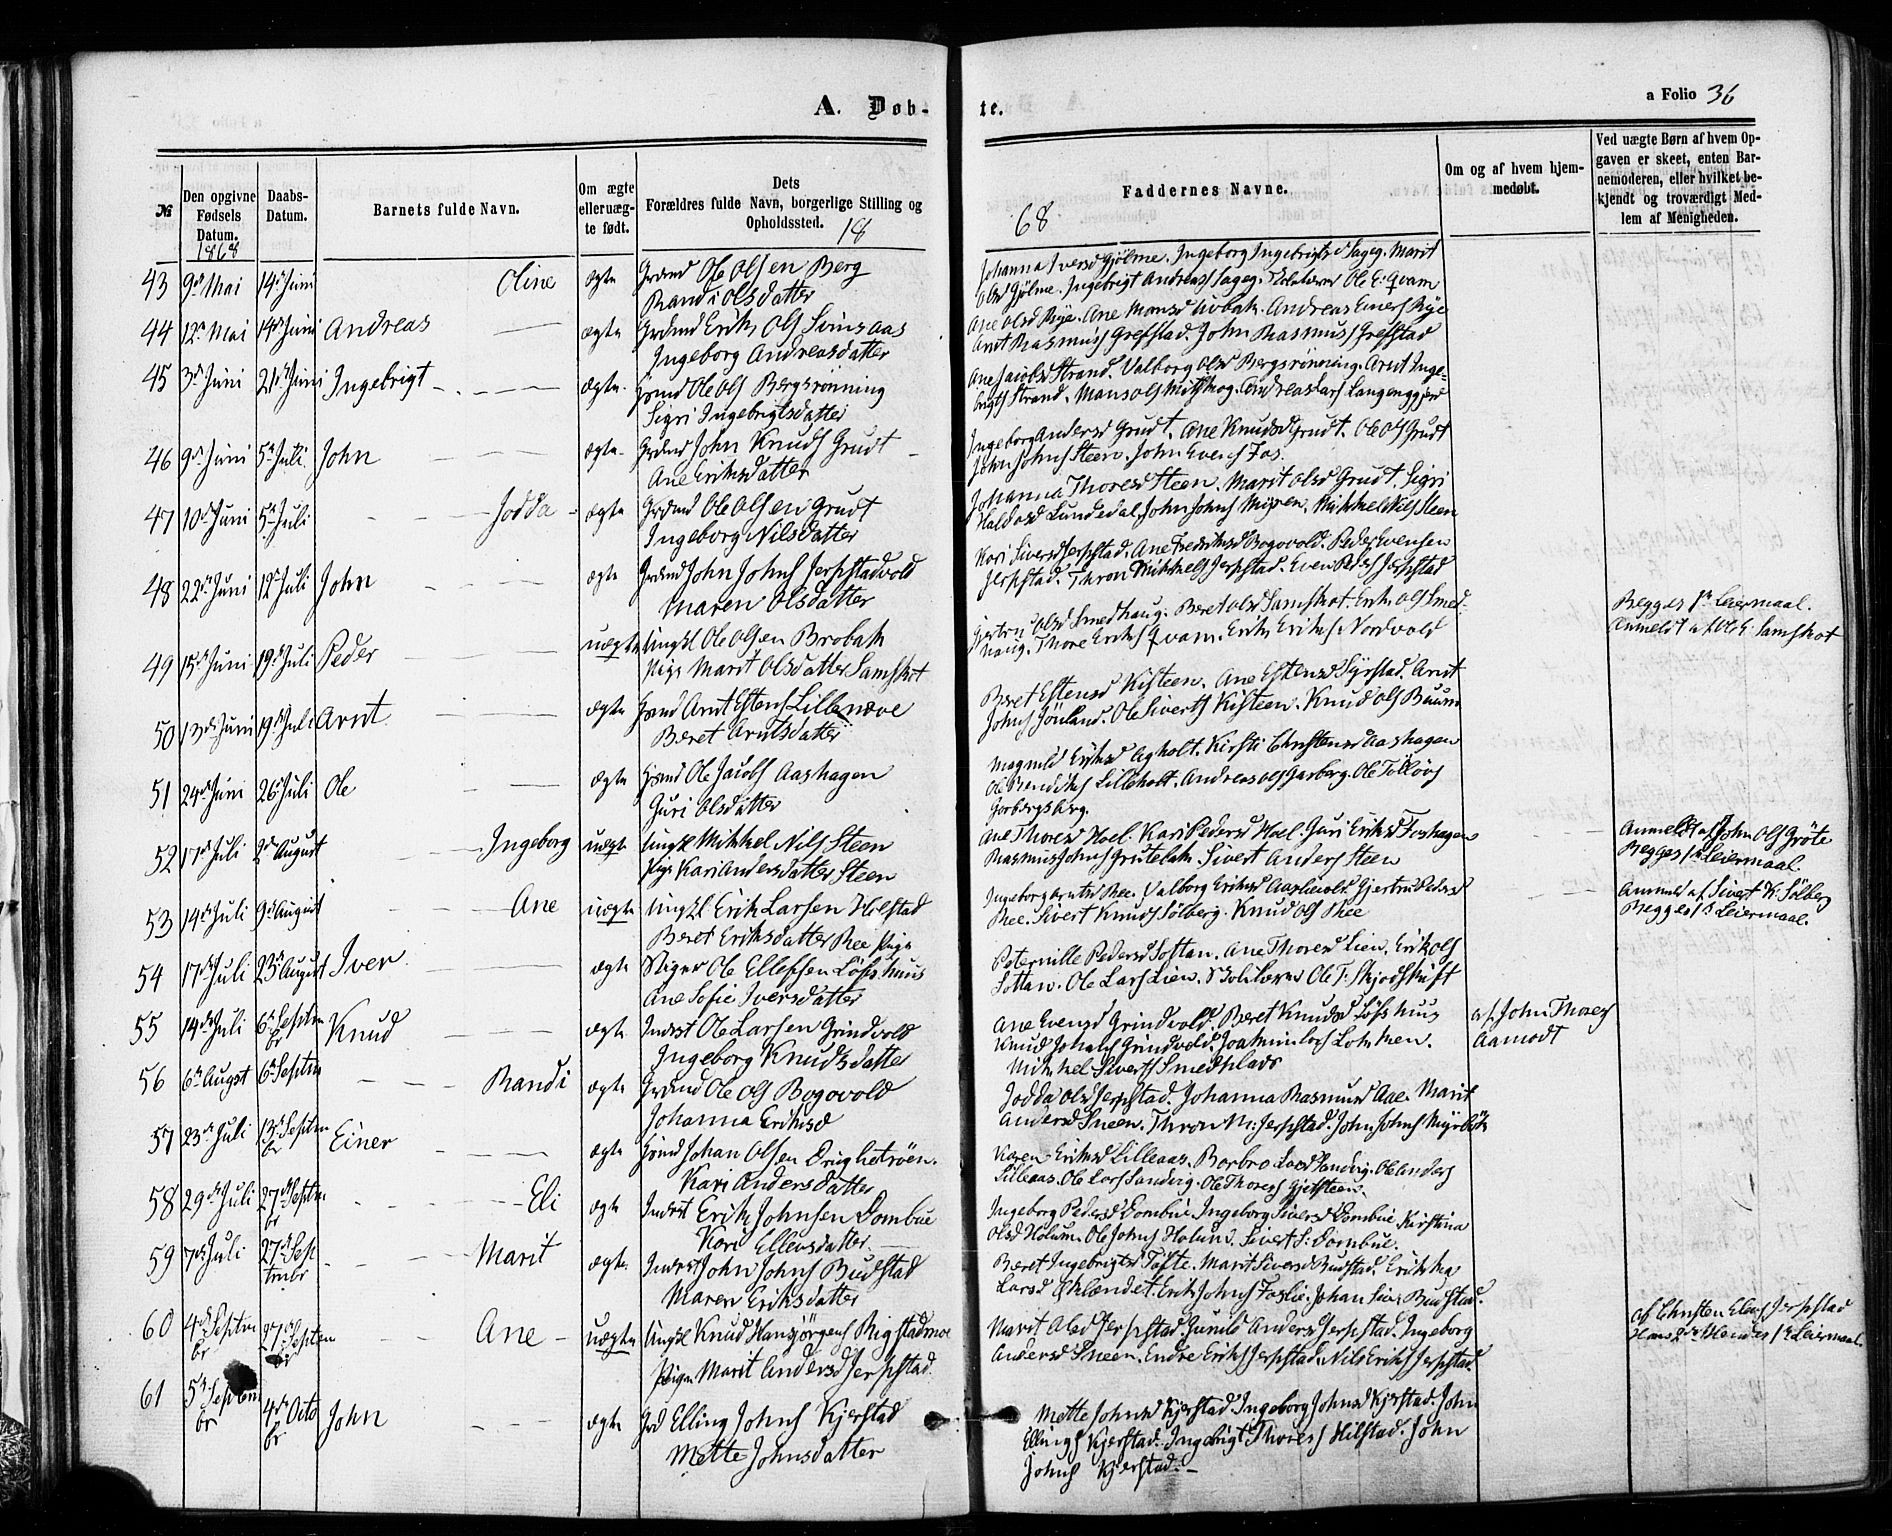 A. Døb-
te.
a Folio 36
№
Den opgivne
Fødsels
Datum.
1868
Daabs-
Datum.
Barnets fulde Navn.
Om ægte
eller uæg-
te født.
Dets
Forældres fulde Navn, borgerlige Stilling og
Opholdssted.
18
Faddernes Navne.
68
Om og af hvem hjem-
medøbt.
Ved uægte Børn af hvem Op-
gaven er skeet, enten Bar-
nemoderen, eller hvilket be-
kjendt og troværdigt Med-
lem af Menigheden.
43 9de Mai 14de Juni Oline ægte Grdmd Ole Olsen Berg
Randi Olsdatter
Johanna Iversd Gjölme. Ingeborg Ingebrigtsd Sageg. Marit
Olsd Gjölme. Ingebrigt Andreass Sageg. Ole E: Qvam
44 12te Mai 14de Juni Andreas ægte Grdmd Erik Ols Svinsaas
Ingeborg Andreasdatter
Ane Olsd Rye. Ane Monsd Andreas Einers Rye
Arnt Rasmuss Grefstad. John Rasmuss Grefstad
45 3de Juni 21de Juni Ingebrigt ægte Hsmd Ole Ols Bergsrönning
Sigri Ingebrigtsdatter
Ane Jacobsd Strand. Valborg Olsd Bergsrönning. Arnt Inge-
brigts Strand. Mons Ols Mitskog. Andreas Lars Langenggjerd
46 9de Juni 5te Juli John ægte Grdmd John Knuds Grudt
Ane Eriksdatter
Ingeborg Andersd Grudt. Ane Knudsd Grudt. Ole Ols Grudt
John Johns Steen. John Evens Fos.
47 10de Juni 5te Juli Jodda ægte Grdmd Ole Olsen Grudt
Ingeborg Nilsdatter
Johanna Thoresd Steen. Marit Olsd Grudt. Sigri
Haldosd Lundedal. John Johns Mixen. Mikkel Nils Steen
48 22de Juni 12te Juli John ægte Grdmd John Johns Jerpstadvold
Maren Olsdatter
Kari Siversd Jerpstad. Ane Fredriksd Bogovold. Peder Evensen
Jerpstad. Thron Mikkels Jerpstad. Even Peders Jerpstad
49 15de Juni 19de Juli Peder uægte Ungkl Ole Olsen Brobak
Pige Marit Olsdatter Samskot
Gjertru Olsd Smedhaug. Beret Olsd Samskot. Erik Ols Smed-
haug. Thore Eriks Qvam. Erik Eriks Nordvold
Begges 1ste Leiermaal.
Anmeldt af Ole E: Samskot
50 13de Juni 19de Juli Arnt ægte Hsmd Arnt Estens Lillenæve
Beret Arntsdatter
Beret Estensd Kisteen. Ane Estensd Syrstad. Arnt
Johns Jönland. Ole Siverts Kisteen. Knud Ols Buum
51 24de Juni 26de Juli Ole ægte Hsmd Ole Jacobs Aashagen
Guri Olsdatter
Magnild Eriksd Agholt. Kirsti Christensd Aashagen
Ole Bendiks Lilleholt. Andreas Ols Garberg. Ole Tollövs
Garbergsberg.
52 17de Juli 2de August Ingeborg uægte Ungkl Mikkel Nils Steen
Pige Kari Andersdatter Steen
Ane Thoresd Hoel. Kari Pedersd Hoel. Guri Eriksd Foshagen
Rasmus Johns Grutebak. Sivert Anders Steen
Anmeldt af John Ols Gröte
Begges 1ste Leiermaal.
53 14de Juli 9de August Ane uægte Ungkl Erik Larsen Holstad
Beret Eriksdatter Ree Pige
Ingeborg Arntsd Ree. Valborg Eriksd Gjertru Pedersd
Ree. Sivert Knuds Sölberg. Knud Ols Ree
Anmeldt af Sivert K: Sölberg
Begges 1ste Leiermaal.
54 17de Juli 23de August Iver ægte Ole Ellefsen Löfshuus
Ane Sofie Iversdatter
Peternille Pedersd Toftan. Ane Thoresd Lien. Erik Ols
Toftan. Ole Lars Lien. Ole T: Skjodskift
55 14de Juli 6te Septembr Knud ægte Inderst Ole Larsen Grindvold
Ingeborg Knudsdatter
Ane Evensd Grindvold. Beret Knudsd Löfshuus
Knud Johns Grindvold. Joakim Lars Lokken.
Mikkel Siverts Smedplads
af John Thores
Aamodt
56 6te Augst 6te Septbr Randi ægte Grdmd Ole Ols Bogovold
Johanna Eriksd
Jodda Olsd Jerpstad. Johanna Rasmusd Aae. Marit
Andersd Sneen. Thron M: Jerpstad. John Johns Myrbak
57 23de Juli 13de Septembr Einer ægte Hsmd Johan Olsen Drughetröen.
Kari Andersdatter
Karen Eriksd Lilleaas. Borbro Larsd Sandvig. Ole Anders
Lilleaas. Ole Lars Sandvig. Ole Thores Gjetsteen.
58 29de Juli 27de Septembr Eli ægte Inderst Erik Johnsen Dombue
Kari Ellevsdatter
Ingeborg Pedersd Dombue. Ingeborg Siversd Dombue. Kirstina
Olsd Holum. Ole Johns Holum. Sivert S: Dombue.
59 7de Juli 27de Septembr Marit ægte Inderst John Johns Budstad
Maren Eriksdatter
Beret Ingebrigtsd Tofte. Marit Siversd Budstad. Erikka
Larsd Erik Johns Foslie. Johan Siver Budstad.
60 4de Septembr 27de Septembr Ane uægte Ungkl Knud Hansjörgens Rigstadmoe
Pigen Marit Andersd Jerpstad
Marit Olsd Jerpstad. Gunild Andersd Jerpstad. Ingeborg
Andersd Sneen. Endre Eriks Jerpstad. Nils Eriks Jerpstad.
af Christen Elevs Jerpstad
Hans 2det Hendes 1ste Leiermaal.
61 5te Septembr 4de Octobr John ægte Grd Elling Johns Kjerstad
Mette Johnsdatter
Mette Johnsd Kjerstad. Ingeborg Johnsd Kjerstad. John
Ellings Kjerstad. Ingebrigt Thores Hilstad. John
Johns Kjerstad.